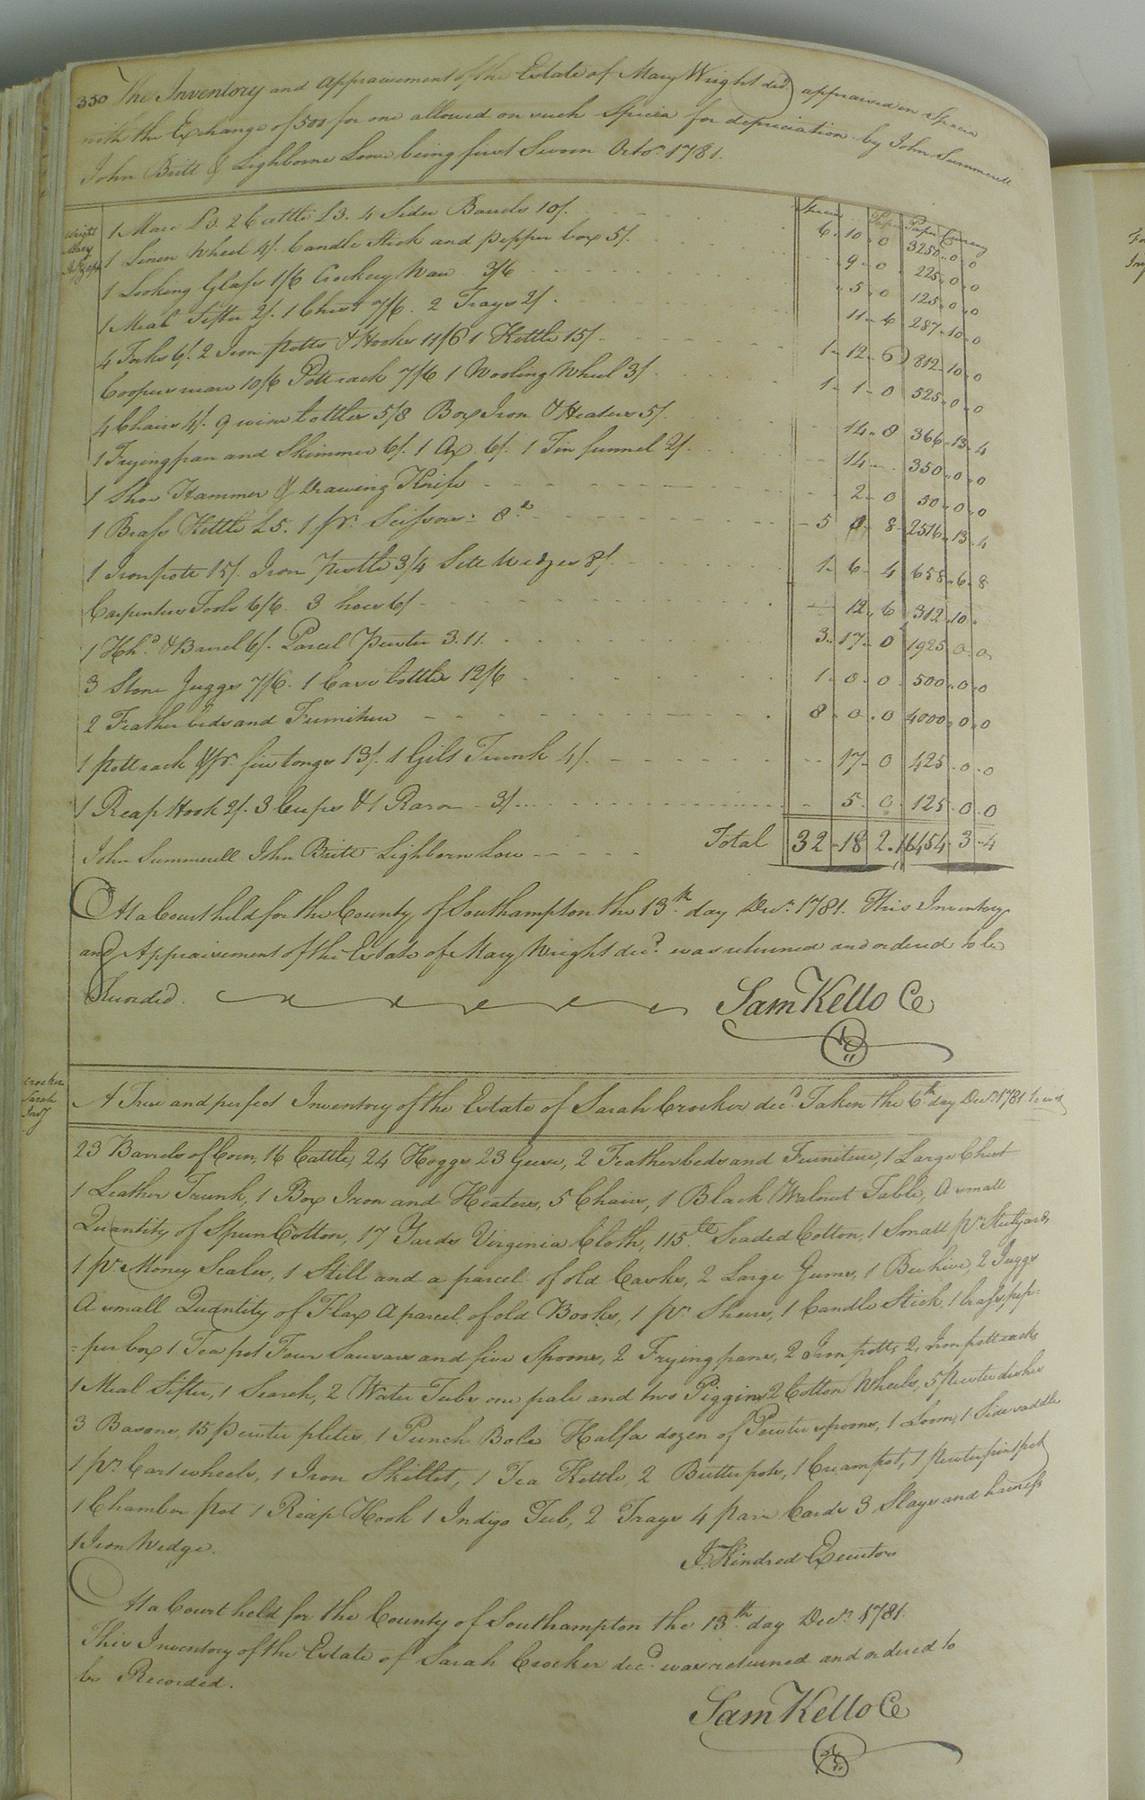 350 The Inventory and Appraisement of the Estate of Mary Wright decd. appraised in Specia
with the Exchange of 500 for one allowed on such Specia for depriciation by John Summerell
John Britt & Lighborne Lowe being first Sworn Octo. 1781.
Wright Mary
Specia Paper Currency
1 Mare £3. 2 Cattle £3. 4 Sider Barrels 10/. 6. 10. 0 3250. 0. 0
1 Linen Wheel 4/. Candle Stick and pepper box 5/. 9. 0 225. 0. 0
1 Looking Glass 1/6 Crockery Ware 3/6 5. 0 125. 0. 0
1 Meal Sifter 2/. 1 Chest 7/6. 2 Trays 2/. 11. 6 287. 10. 0
4 Forks 6/. 2 Iron potts & Hooks 11/6 1 Kettle 15/. 1. 12. 6 812. 10. 0
Coopers ware 10/6 Pottrack 7/6 1 Wooling Wheel 3/. 1. 1. 0 525. 0. 0
4 Chairs 4/. 9 wine bottles 5/8 Box Iron & Heaters 5/. 14. 8 366. 13. 4
1 Fryingpan and Skimmer 6/. 1 Ax 6/. 1 Tin funnel 2/. 14. 350. 0. 0
1 Shoe Hammer & Drawing Knife 2. 0 50. 0. 0
1 Brass Kettle £5. 1 pr. Scissors 8d 5 0 8 2516. 13. 4
1 Ironpott 15/. Iron Pestle 3/4 Sett Wedges 8/. 1. 6. 4 658. 6. 8
Carpenters Tools 6/6. 3 hoes 6/. 12. 6 312. 10.
1 Hhd. & Barrel 6/. Parcel Pewter 3.11. 3. 17. 0 1925. 0. 0.
3 Stone Juggs 7/6. 1 Case bottles 12/6 1. 0. 0 500. 0. 0
2 Feather beds and Furniture 8. 0. 0 4000. 0. 0
1 pottrack & pr. fire tongs 13/. 1 Gilt Trunk 4/. 17. 0 425. 0. 0
1 Reap Hook 2/. 3 Cups & 1 Rason 3/. 5. 0. 125. 0. 0
John Summerell John Britt Lighborn Low Total 32. 18 2. 16454. 3. 4
At a Court held for the County of Southampton the 13th. day Decr. 1781. This Inventory
and Appraisement of the Estate of Mary Wright decd. was returned and ordered to be
Recorded. Sam Kello Cc
Crocker Sarah Invy
A True and perfect Inventory of the Estate of Sarah Crocker decd. Taken the 6th day Decr. 1781
23 Barrels of Corn, 16 Cattle, 24 Hoggs 23 Geese, 2 Feather beds and Furniture, 1 Large Chest
1 Leather Trunk, 1 Box Iron and Heaters, 5 Chairs, 1 Black Walnut Table, A small
Quantity of Spun Cotton, 17 Yards Virginia Cloth, 115 lb Seaded Cotton, 1 Small pr. Stilyards,
1 pr. Money Scales, 1 Still and a parcel of old Casks, 2 Large Gums, 1 Bee hive, 2 Juggs
A small Quantity of Flax A parcel of old Books, 1 pr Shears, 1 Candle Stick, 1 brass pep-
=per box 1 Tea pot Four Sausars and five Spoons, 2 Frying pans, 2 Iron potts 2, Iron pottracks
1 Meal Sifter, 1 Search, 2 Water Tubs one pale and two Piggins 2 Cotton Wheels, 5 Pewter dishes
3 Basons, 15 pewter plites, 1 Punch Bole Half a dozen of Pewter spoons, 1 Loom, 1 Side saddle
1 pr. Cart wheels, 1 Iron Skillet, 1 Tea Kettle 2 Butter pots, 1 Cream pot, 1 pewter pint pot
1 Chamber pot 1 Reap Hook 1 Indigo Tub, 2 Trays 4 pare Cards 3 Slays and harness
1 Iron Wedge. J. Kindred Executor
At a Court held for the County of Southampton the 13th day Decr. 1781.
This Inventory of the Estate of Sarah Crocker decd was returned and ordered to
be Recorded.
Sam Kello Cc